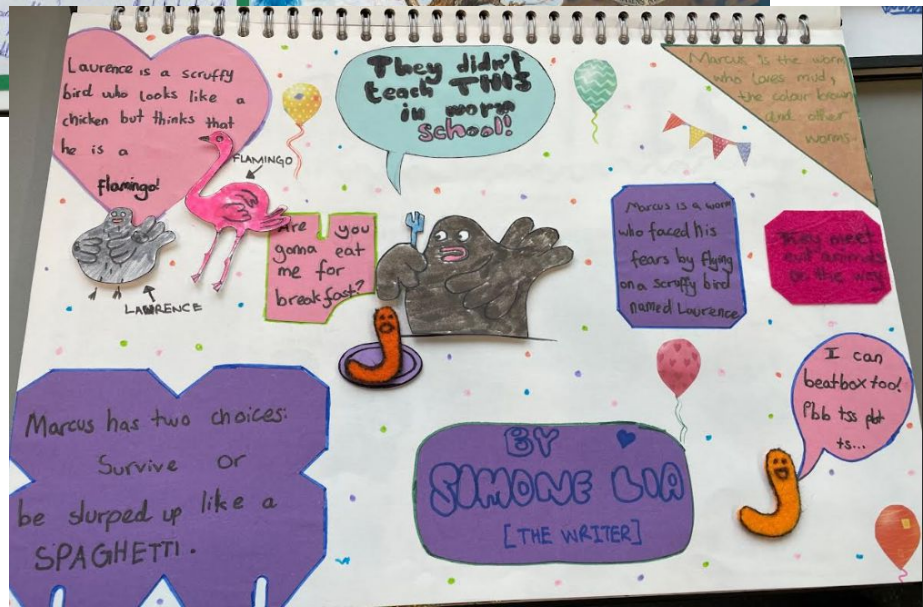 Laurence is a scruffy
bird who looks like a
chicken but thinks that
he is a
flamingo!
FLAMINGO
LAWRENCE
They didn't
teach THIS
in worm
school!
Marcus is the worm
who loves mud,
the colour brown
and other
worms.
Are you
gonna eat
me for
breakfast?
Marcus is a worm
who faced his
fears by flying
on a scruffy bird
named Laurence
They meet
evil animals
on the way
I can
beatbox too!
Pbb tss pbt
ts...
Marcus has two choices:
Survive or
be slurped up like a
SPAGHETTI.
BY
SIMONE LIA
[THE WRITER]